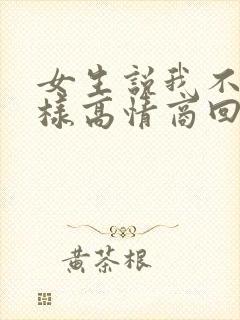 女生说我不
样高情商回
黄茶根